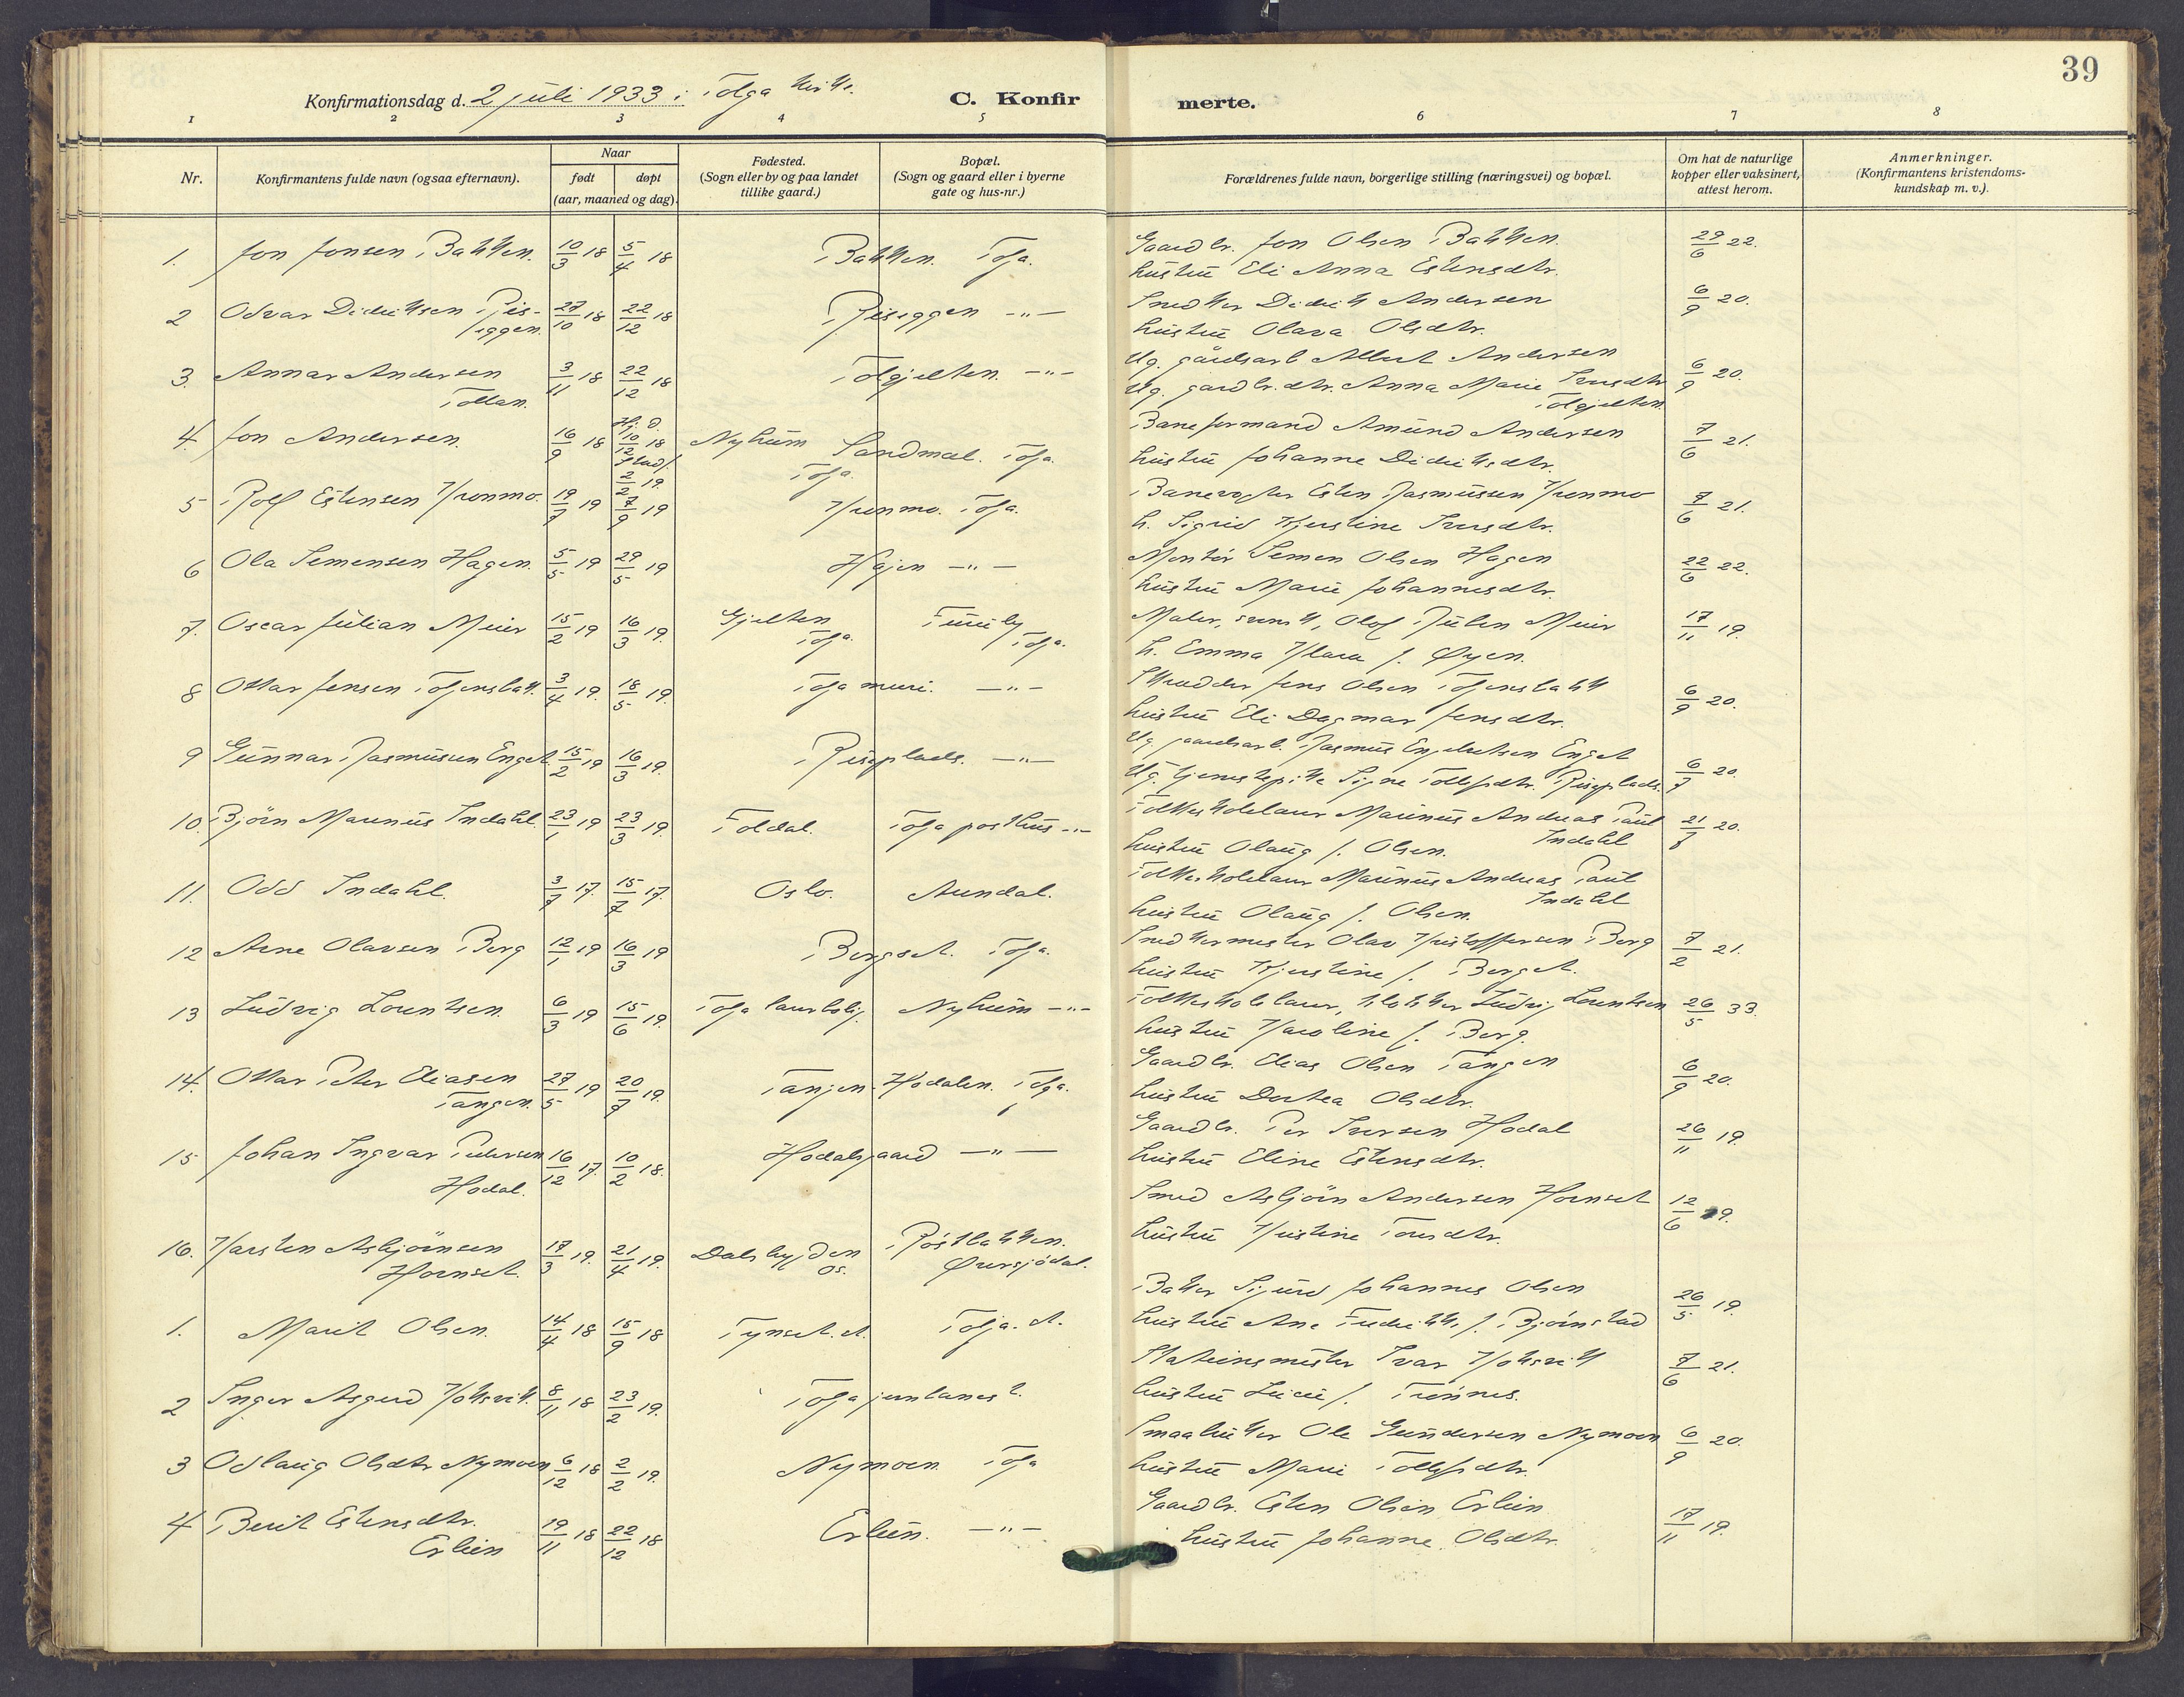 39
Konfirmationsdag d. 2 juli 1933 i Tolga kirke.
C. Konfirmerte.
1 2 3 4 5 6 7 8
Nr.
Konfirmantens fulde navn (ogsaa efternavn).
Naar
født
døpt
(aar, maaned og dag)
Fødested.
(Sogn eller by og paa landet
tillike gaard.)
Bopæl.
(Sogn og gaard eller i byerne
gate og hus-nr.)
Forældrenes fulde navn, borgerlige stilling (næringsvei) og bopæl.
Om hat de naturlige
kopper eller vaksinert,
attest herom.
Anmerkninger.
(Konfirmantens kristendoms-
kundskap m. v.).
1. Jon Jonsen Bakken. 10/3 18 5/4 18 Bakken. Tolga. Gaardbr. Jon Olsen Bakken. 29/6 22.
hustru Eli Anna Estensdtr.
2 Odvar Didriksen Riseggen. 27/10 18 22/12 18 Riseggen -"- Snedker Didrik Andersen 6/9 20.
hustru Olava Olsdtr.
3. Annar Andersen 3/11 18 22/12 18 Tolgjelten. -"- Ug. gårdsarb Albert Andersen 6/9 20.
Tollan. Ug. gardbr.dtr. Anna Marie Iversdtr
Tolgjelten.
4. Jon Andersen. 16/9 18 Hj. d. 10/12 18 Stad f. 2/2 19. Nyhuum Tolga. Sandmæl. Tolga. Baneformand Amund Andersen 7/6 21.
hustru Johanne Didriksdtr.
5 Rolf Estensen Kronmo. 19/7 19 7/9 19 Kronmo. Tolga. Banevogter Esten Rasmussen Kronmo 7/6 21.
h. Sigrid Kjerstine Iversdtr.
6 Ola Semensen Hagen. 5/5 19 29/5 19 Hagen -"- Montör Semen Olsen Hagen 22/6 22.
hustru Marie Johannesdtr.
7. Oscar Julian Meier 15/2 19 16/3 19. Gjelten Tolga. Furuly Tolga. Maler, svensk, Olof Julen Meier 17/11 19.
h. Emma Klara f. Øyen.
8 Ottar Jensen Tolgensbak. 3/4 19. 18/5 19. Tolga muri. -"- Skrædder Jens Olsen Tolgensbakk 6/9 20.
hustru Eli Dagmar Jensdtr.
9 Gunnar Rasmussen Enget. 15/2 19 16/3 19. Riseplads. -"- Ug. gaardsarb. Rasmus Engebretsen Enget 6/7 20.
Ug. tjenestepike Signe Tollefsdtr. Riseplads.
10. Björn Marinius Indahl. 23/1 19 23/3 19. Foldal. Tolga posthus -"- Folkeskolelærer Marinus Andreas Paul 21/8 20.
hustru Olaug f. Olsen. Indahl
11. Odd Indahl. 3/7 17. 15/7 17. Oslo. Arendal. Folkeskolelærer Marinus Andreas Paul
hustru Olaug f. Olsen. Indahl
12 Arne Olavsen Berg 12/1 19 16/3 19 Bergset. Tolga. Snedkermester Olav Kristoffersen Berg 7/2 21.
hustru Kjerstine f. Berget.
13 Ludvig Lorentsen. 6/3 19 15/6 19. Tolga lærerbolig. Nyhuum -"- Folkeskolelærer, klokker Ludvig Lorentsen 26/5 33.
hustru Karoline f. Berg.
14. Ottar Peter Eliasen 27/5 19 20/7 19. Tangen. Hodalen. Tolga. Gaardbr. Elias Olsen Tangen 6/9 20.
Tangen. hustru Dortea Olsdtr.
15 Johan Ingvar Pedersen 16/12 17. 10/2 18. Hodalsgaard -"- Gaardbr. Per Iversen Hodal 26/11 19.
Hodal. hustru Eline Estensdtr.
16. Karsten Asbjörnsen 17/3 19. 21/4 19. Dalsbygden Os. Röstbakken. Øversjödal. Smed Asbjörn Andersen Hornset 12/6 29.
Hornset. hustru Kristine Toresdtr.
1. Marit Olsen. 14/4 18 15/9 18 Tynset. st. Tolga. st. Baker Sigurd Johannes Olsen 26/5 19.
hustru Ane Fredrikke f. Björnstad
2 Inger Asgerd Koksvik. 8/11 18 23/2 19. Tolga jernbanest. Stationsmester Ivar Koksvik 7/6 21.
hustru Lucie f. Trönnes.
3 Odlaug Olsdtr Nymoen 6/12 18 2/2 19. Nymoen Tolga Smaabruker Ole Gundersen Nymoen 6/9 20.
hustru Marie Tollefsdtr.
4 Berit Estensdtr. 19/11 18 22/12 18 Erlien. -"- Gaardbr. Esten Olsen Erlien 17/11 19.
Erlien hustru Johanne Olsdtr.